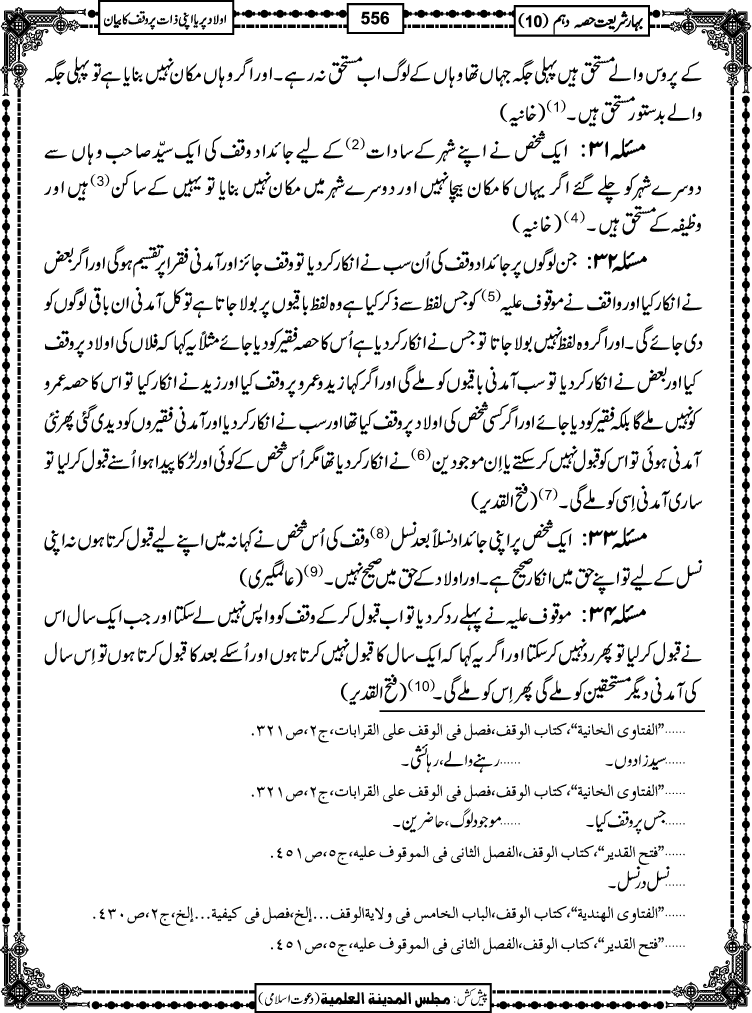 بہارِ شریعت حصہ دہم (10)
556
اولاد پر یا اپنی ذات پر وقف کا بیان
کے پروس والے مستحق ہیں پہلی جگہ جہاں تھا وہاں کے لوگ اب مستحق نہ رہے۔ اور اگر وہاں مکان نہیں بنایا ہے تو پہلی جگہ
والے بدستور مستحق ہیں۔(1) (خانیہ)
مسئلہ ۳۱: ایک شخص نے اپنے شہر کے سادات(2) کے لیے جائداد وقف کی ایک سیّد صاحب وہاں سے
دوسرے شہر کو چلے گئے اگر یہاں کا مکان بیچا نہیں اور دوسرے شہر میں مکان نہیں بنایا تو یہیں کے ساکن(3) ہیں اور
وظیفہ کے مستحق ہیں۔(4) (خانیہ)
مسئلہ ۳۲: جن لوگوں پر جائداد وقف کی اُن سب نے انکار کر دیا تو وقف جائز اور آمدنی فقرا پر تقسیم ہوگی اور اگر بعض
نے انکار کیا اور واقف نے موقوف علیہ(5) کو جس لفظ سے ذکر کیا ہے وہ لفظ باقیوں پر بولا جاتا ہے تو کل آمدنی ان باقی لوگوں کو
دی جائے گی۔ اور اگر وہ لفظ نہیں بولا جاتا تو جس نے انکار کر دیا ہے اُس کا حصہ فقیر کو دیا جائے مثلاً یہ کہا کہ فلاں کی اولاد پر وقف
کیا اور بعض نے انکار کر دیا تو سب آمدنی باقیوں کو ملے گی اور اگر کہا زید و عمرو پر وقف کیا اور زید نے انکار کیا تو اس کا حصہ عمرو
کو نہیں ملے گا بلکہ فقیر کو دیا جائے اور اگر کسی شخص کی اولاد پر وقف کیا تھا اور سب نے انکار کر دیا اور آمدنی فقیروں کو دیدی گئی پھر نئی
آمدنی ہوئی تو اس کو قبول نہیں کر سکتے یا اِن موجودین(6) نے انکار کر دیا تھا مگر اُس شخص کے کوئی اور لڑکا پیدا ہوا اُسنے قبول کر لیا تو
ساری آمدنی اِسی کو ملے گی۔(7) (فتح القدیر)
مسئلہ ۳۳: ایک شخص پر اپنی جائداد نسلاً بعد نسل(8) وقف کی اُس شخص نے کہا نہ میں اپنے لیے قبول کرتا ہوں نہ اپنی
نسل کے لیے تو اپنے حق میں انکار صحیح ہے۔ اور اولاد کے حق میں صحیح نہیں۔(9) (عالمگیری)
مسئلہ ۳۴: موقوف علیہ نے پہلے رد کر دیا تو اب قبول کرکے وقف کو واپس نہیں لے سکتا اور جب ایک سال اس
نے قبول کر لیا تو پھر رد نہیں کر سکتا اور اگر یہ کہا کہ ایک سال کا قبول نہیں کرتا ہوں اور اُسکے بعد کا قبول کرتا ہوں تو اِس سال
کی آمدنی دیگر مستحقین کو ملے گی پھر اِس کو ملے گی۔(10) (فتح القدیر)
......”الفتاوی الخانیة“، کتاب الوقف، فصل فی الوقف علی القرابات، ج۲، ص۳۲۱.
......سیدزادوں۔ ......رہنے والے، رہائشی۔
......”الفتاوی الخانیة“، کتاب الوقف، فصل فی الوقف علی القرابات، ج۲، ص۳۲۱.
......جس پر وقف کیا۔ ......موجود لوگ، حاضرین۔
......”فتح القدیر“، کتاب الوقف، الفصل الثانی فی الموقوف علیه، ج۵، ص۴۵۱.
......نسل در نسل۔
......”الفتاوی الهندیة“، کتاب الوقف، الباب الخامس فی ولایة الوقف...إلخ، فصل فی کیفیة...إلخ، ج۲، ص۴۳۰.
......”فتح القدیر“، کتاب الوقف، الفصل الثانی فی الموقوف علیه، ج۵، ص۴۵۱.
پیش کش: مجلس المدینة العلمیة (دعوت اسلامی)